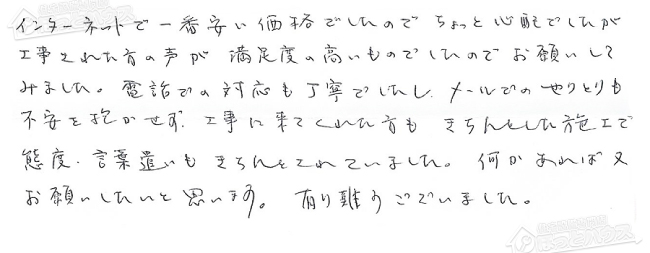 インターネットで一番安い価格でしたので ちょっと心配でしたが
工事された方の声が 満足度の高いものでしたので お願いして
みました。電話での対応も丁寧でしたし、メールでのやりとりも
不安を抱かせず、工事に来てくれた方も きちんとした施工で
態度・言葉遣いも きちんとされていました。何かあれば又
お願いしたいと思います。 有り難うございました。